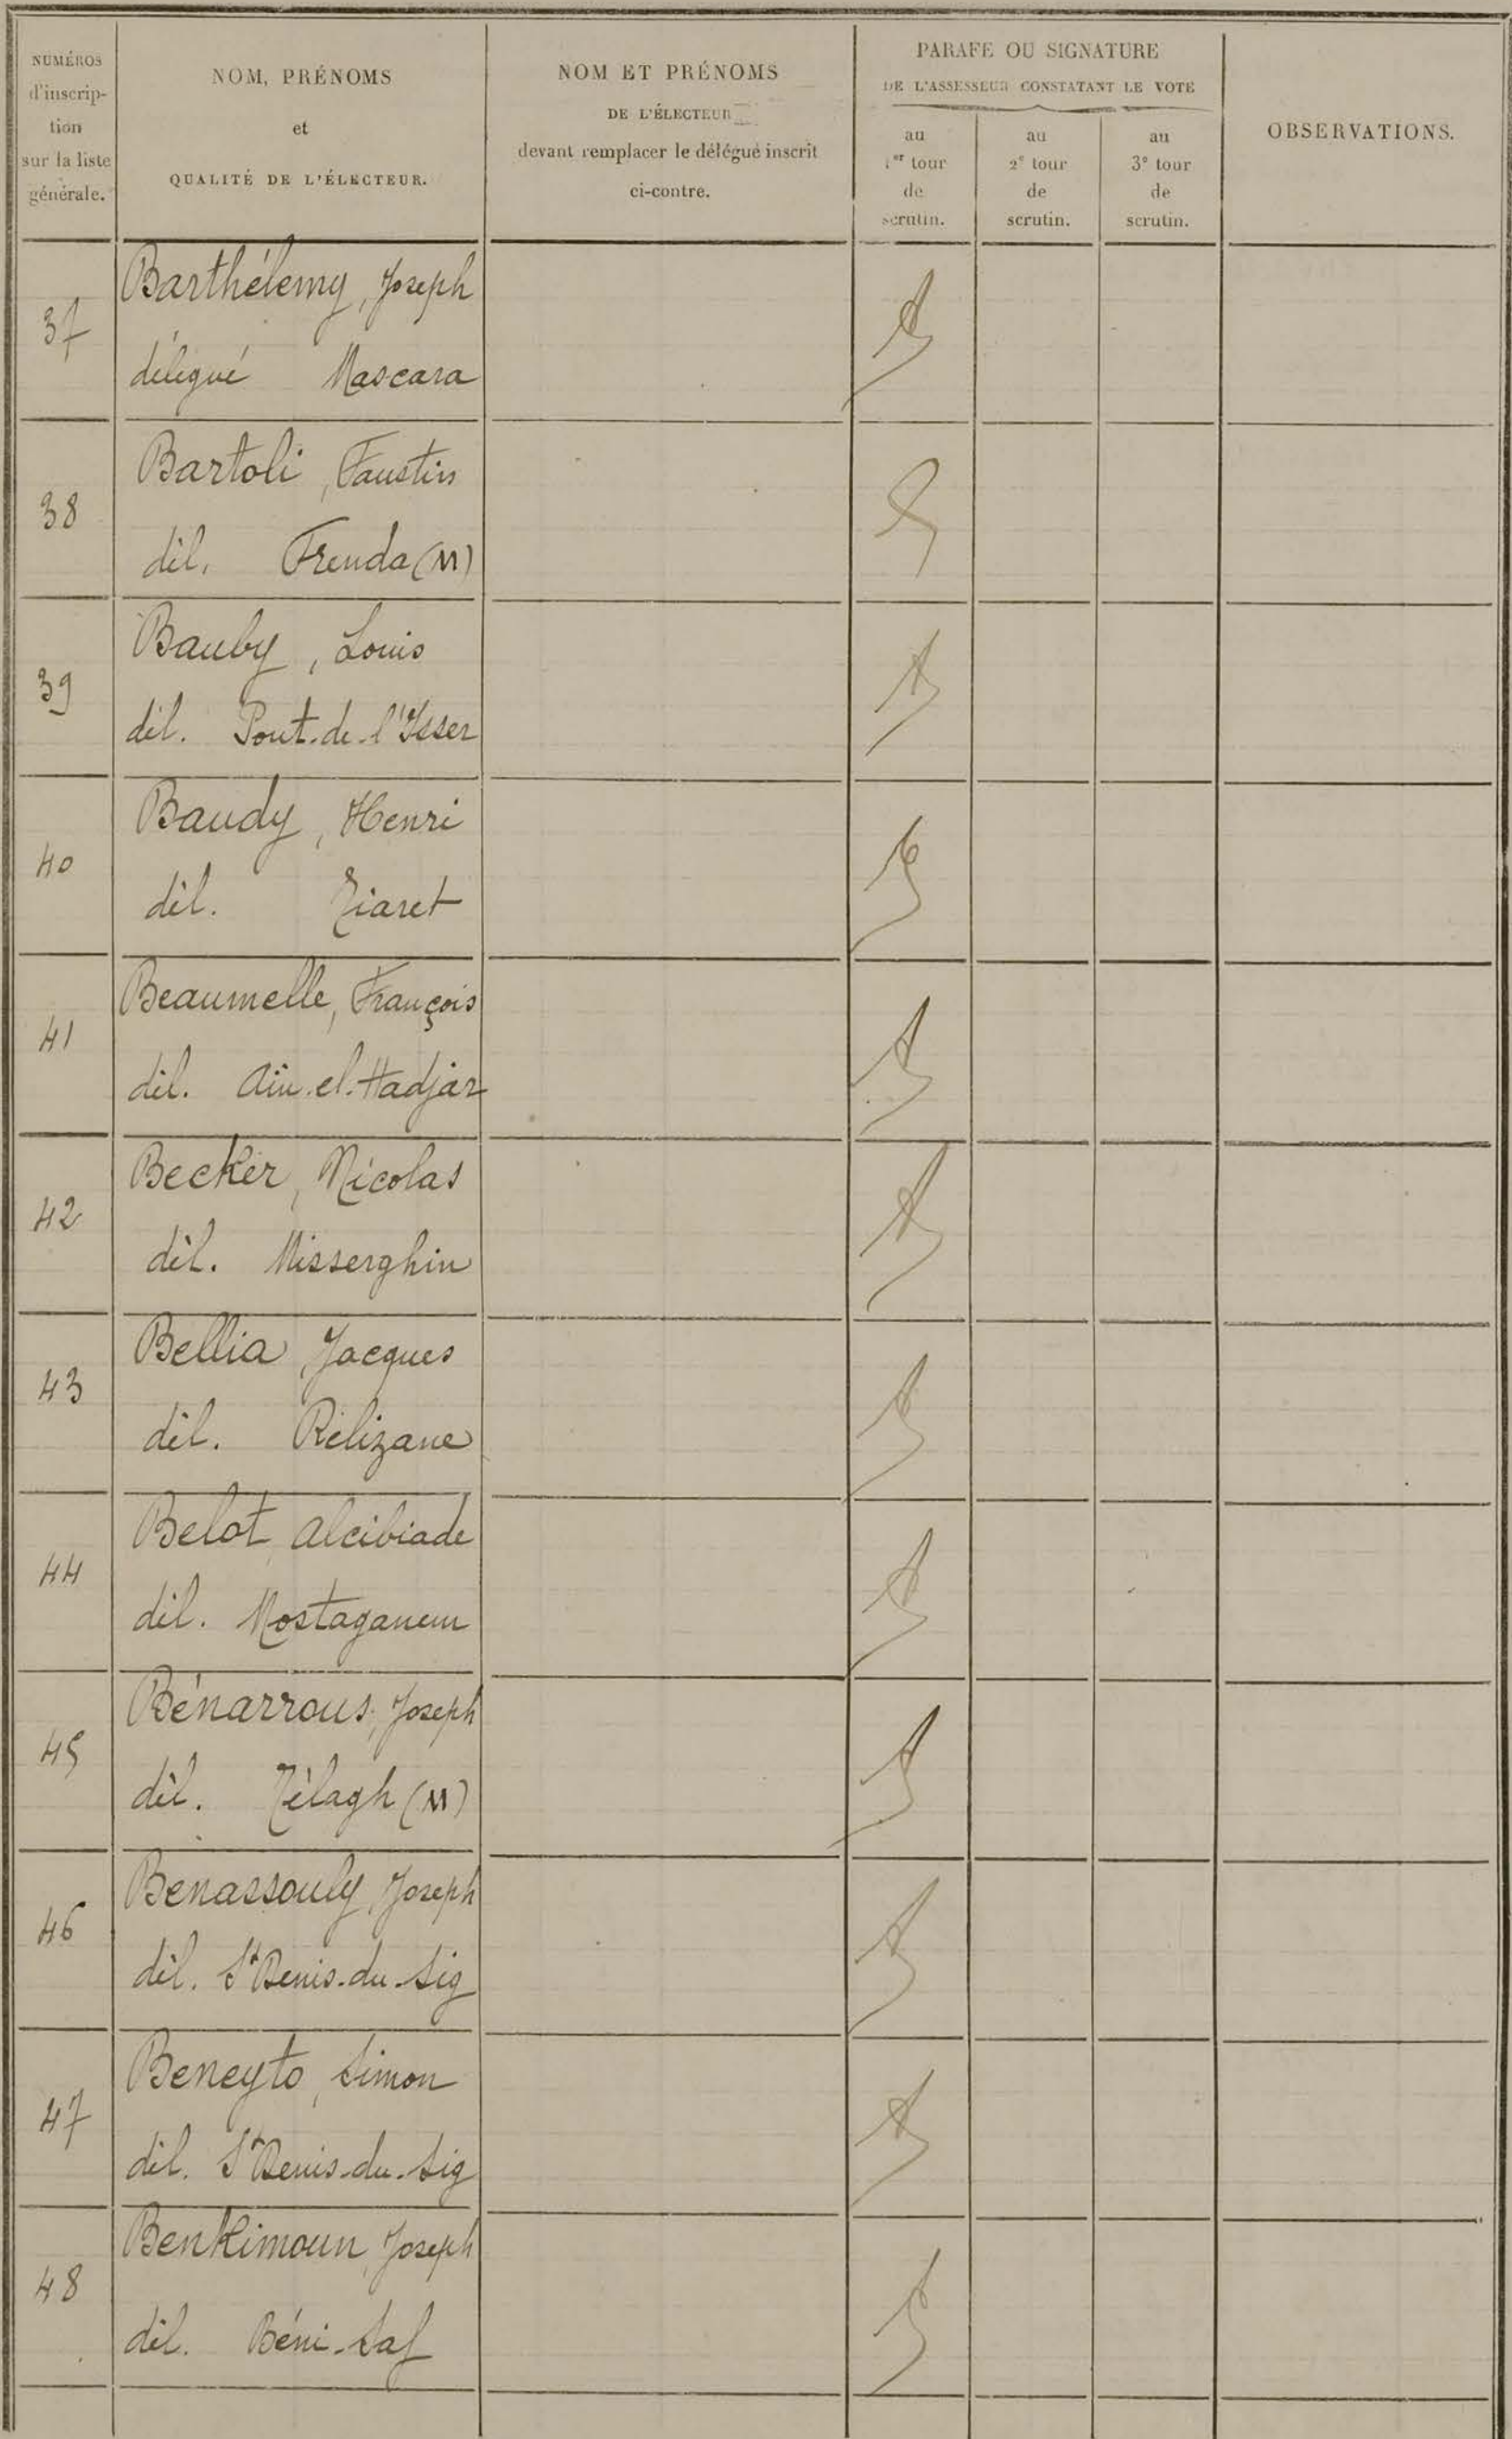 NUMÉROS
d'inscrip-
tion
sur la liste
générale.
NOM, PRÉNOMS
et
QUALITÉ DE L'ÉLECTEUR.
NOM ET PRÉNOMS
DE L'ÉLECTEUR
devant remplacer le délégué inscrit
ci-contre.
PARAFE OU SIGNATURE
DE L'ASSESSEUR CONSTATANT LE VOTE
au
1er tour
de
scrutin.
au
2e tour
de
scrutin.
au
3e tour
de
scrutin.
OBSERVATIONS.
37
Barthélemy, Joseph
délégué Mascara
38
Bartoli, Faustin
dél. Frenda (M)
39
Bauby, Louis
dél. Pont-de-l'Isser
40
Baudy, Henri
dél. Tiaret
41
Beaumelle, François
dél. Aïn-el-Hadjar
42
Becker, Nicolas
dél. Misserghin
43
Bellia, Jacques
dél. Rélizane
44
Belot, Alcibiade
dél. Mostaganem
45
Bénarrous, Joseph
dél. Télagh (M)
46
Benassouly, Joseph
dél. St Denis-du-Sig
47
Beneyto, Simon
dél. St Denis-du-Sig
48
Benkimoun, Joseph
dél. Béni-Saf